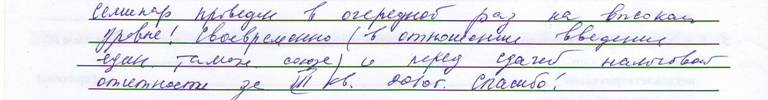 Семинар проведен в очередной раз на высоком
уровне! Своевременно (в отношении введения
един. тамож. союзе) и перед сдачей налоговой
отчетности за III кв. 2010г. Спасибо!